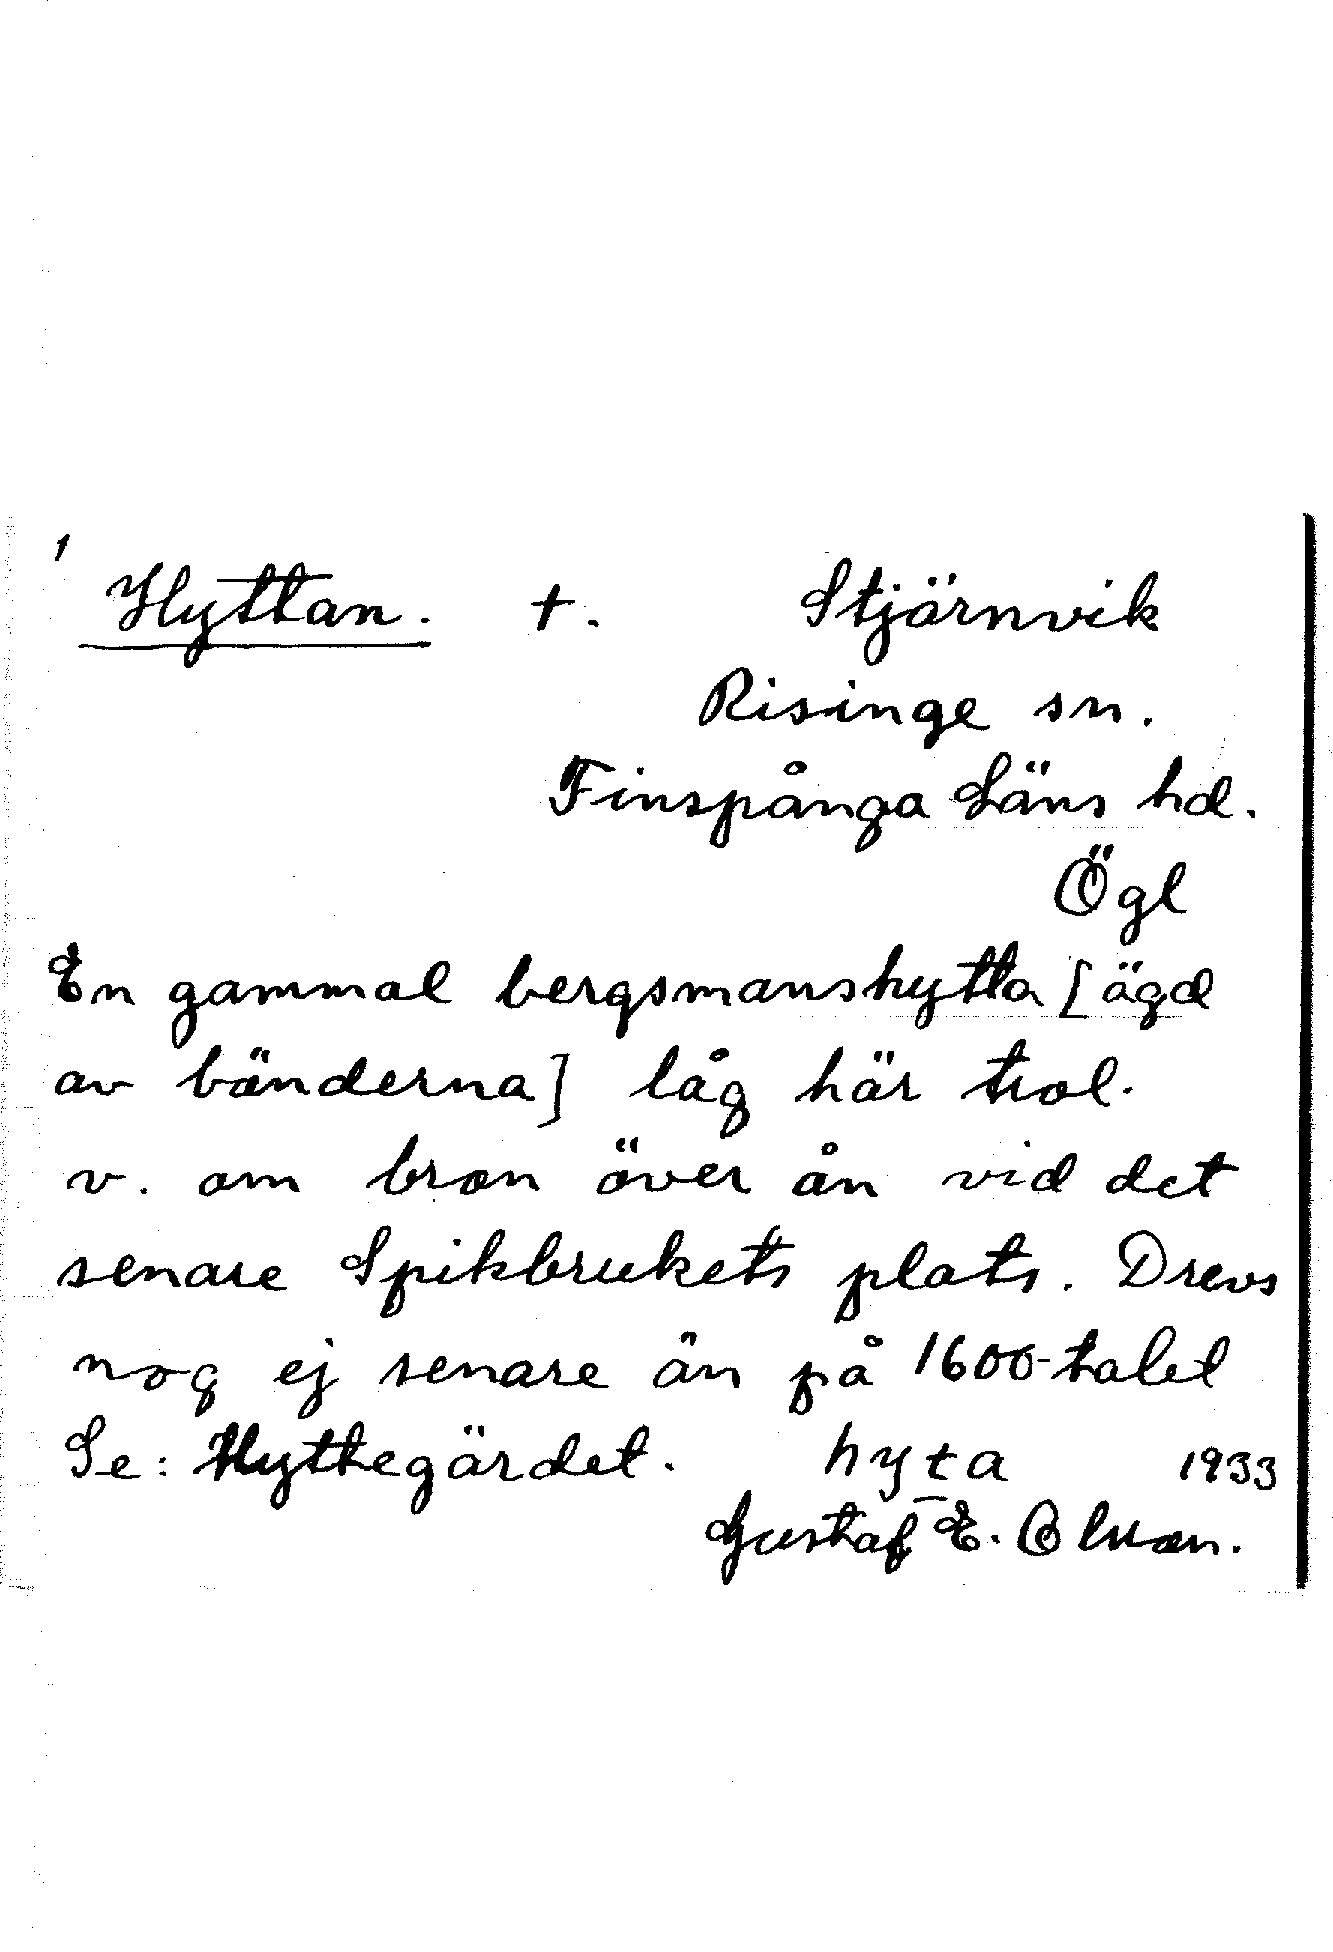 1
Hyttan. +. Stjärnvik
Risinge sn.
Finspånga Läns hd.
Ögl
En gammal bergsmanshytta [ägd
av bönderna] låg här trol.
v. om bron över ån vid det
senare Spikbrukets plats. Drevs
nog ej senare än på 1600-talet
Se: Hyttegärdet. hyta 1933
Gustaf E. Olsson.